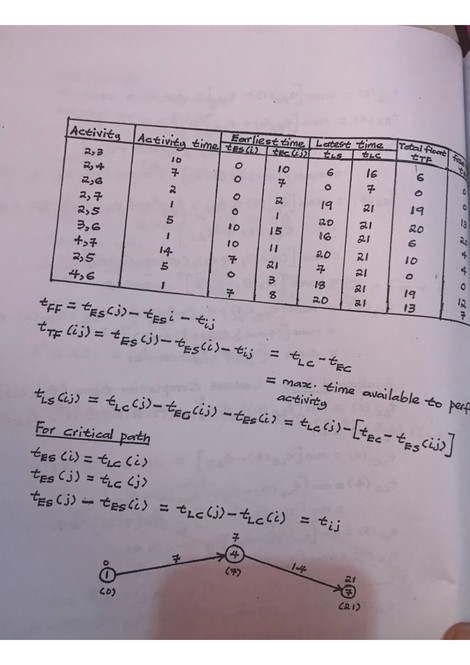 Activity Activity time Earliest time Latest time Total float
tES(i) tEC(ij) tLS tLC tTF
2,3 10 0 10 6 16 6
2,4 7 0 7 0 7 0
2,6 2 0 2 19 21 19
2,7 1 0 1 20 21 20
2,5 5 10 15 16 21 6
3,6 1 10 11 20 21 10
4,7 14 7 21 7 21 0
2,5 5 0 3 18 21 19
4,6 1 7 8 20 21 13
tFF = tES(j) - tES i - tij
tTF(ij) = tES(j) - tES(i) - tij = tLC - tEC
= max. time available to perf
activity
tLS(ij) = tLC(j) - tEC(ij) - tES(i) = tLC(j) - [tEC - tES(ij)]
For critical path
tES(i) = tLC(i)
tES(j) = tLC(j)
tES(j) - tES(i) = tLC(j) - tLC(i) = tij
0 1 (0) 7 7 4 (7) 14 21 7 (21)